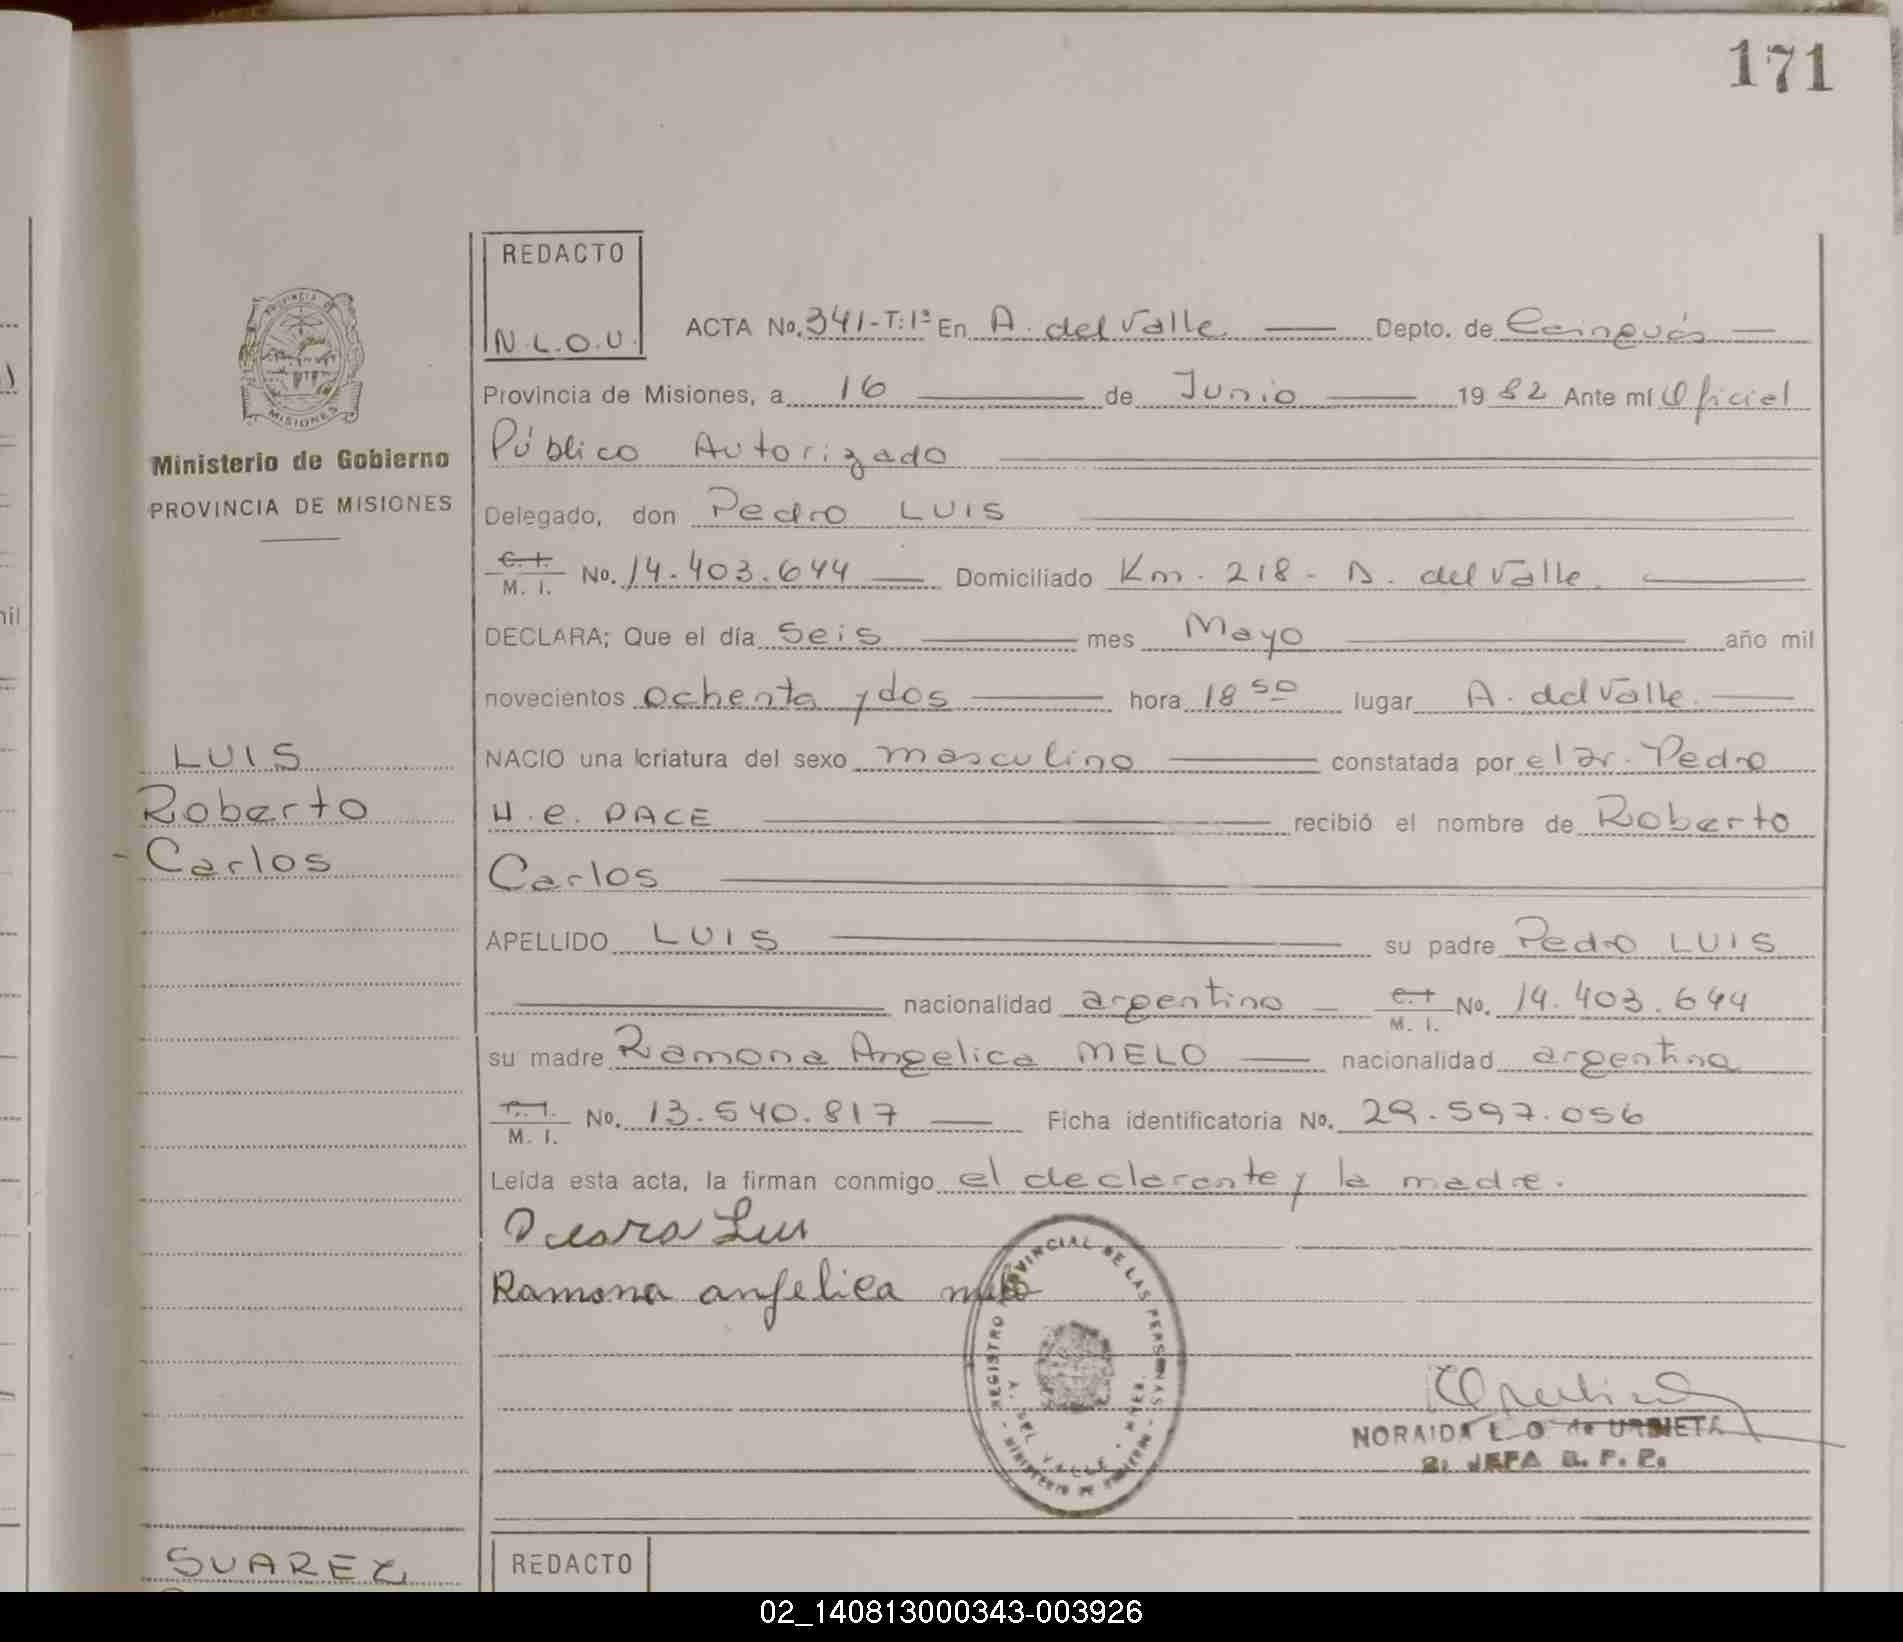 171
REDACTO
N.L.O.U.
ACTA No. 341-T:1º En A. del Valle Depto. de Cainguás
Provincia de Misiones, a 16 de Junio 1982 Ante mí Oficial
Público Autorizado
Delegado, don Pedro LUIS
C. I. M. I. No. 14.403.644 Domiciliado Km. 218 - A. del Valle.
DECLARA; Que el día Seis mes Mayo año mil
novecientos ochenta y dos hora 18 50 lugar A. del Valle.
NACIO una criatura del sexo masculino constatada por el Dr. Pedro
H. C. PACE recibió el nombre de Roberto
Carlos
APELLIDO LUIS su padre Pedro LUIS
nacionalidad argentino C. I. M. I. No. 14.403.644
su madre Ramona Angelica MELO nacionalidad argentina
C. I. M. I. No. 13.540.817 Ficha identificatoria No. 29.597.056
Leída esta acta, la firman conmigo el declarante y la madre.
Pedro Luis
Ramona angelica melo
REGISTRO PROVINCIAL DE LAS PERSONAS
A. DEL VALLE - MNES.
MINISTERIO DE GOBIERNO
NORAIDA L. O. de URBIETA
2. JEFA
PROVINCIA DE
MISIONES
Ministerio de Gobierno
PROVINCIA DE MISIONES
LUIS
Roberto
Carlos
SUAREZ
REDACTO
mil
02_140813000343-003926